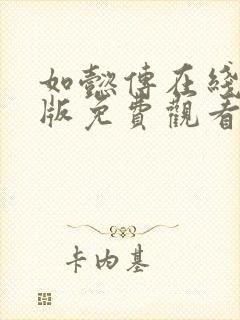 如懿傅在綫
版免費觀看
卡内基